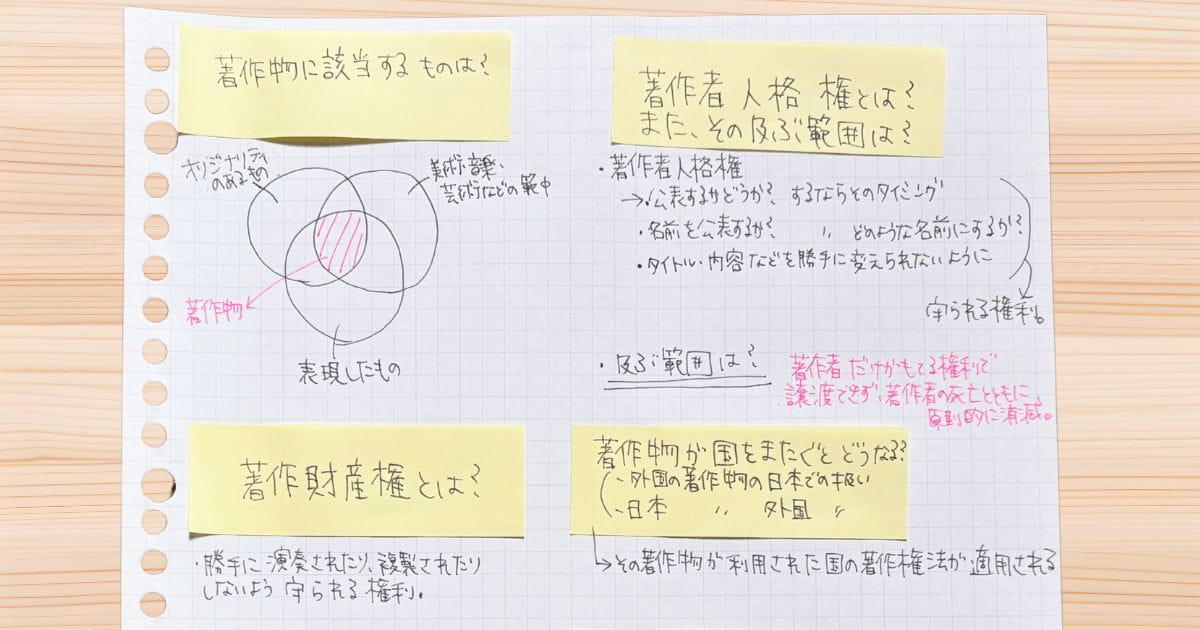 著作物に該当するものは?
オリジナリティ
のあるもの
美術・音楽、
芸術などの範中
著作物
表現したもの
著作者人格権とは?
また、その及ぶ範囲は?
・著作者人格権
→・公表するかどうか? するならそのタイミング
・名前を公表するか? 〃 どのような名前にするか?
・タイトル・内容などを勝手に変えられないように
守られる権利。
・及ぶ範囲は?
著作者だけがもてる権利で
譲渡できず、著作者の死亡とともに、
原則的に消滅。
著作財産権とは?
・勝手に演奏されたり、複製されたり
しないよう守られる権利。
著作物が国をまたぐとどうなる?
・外国の著作物の日本での扱い
・日本 〃 外国 〃
→その著作物が利用された国の著作権法が適用される